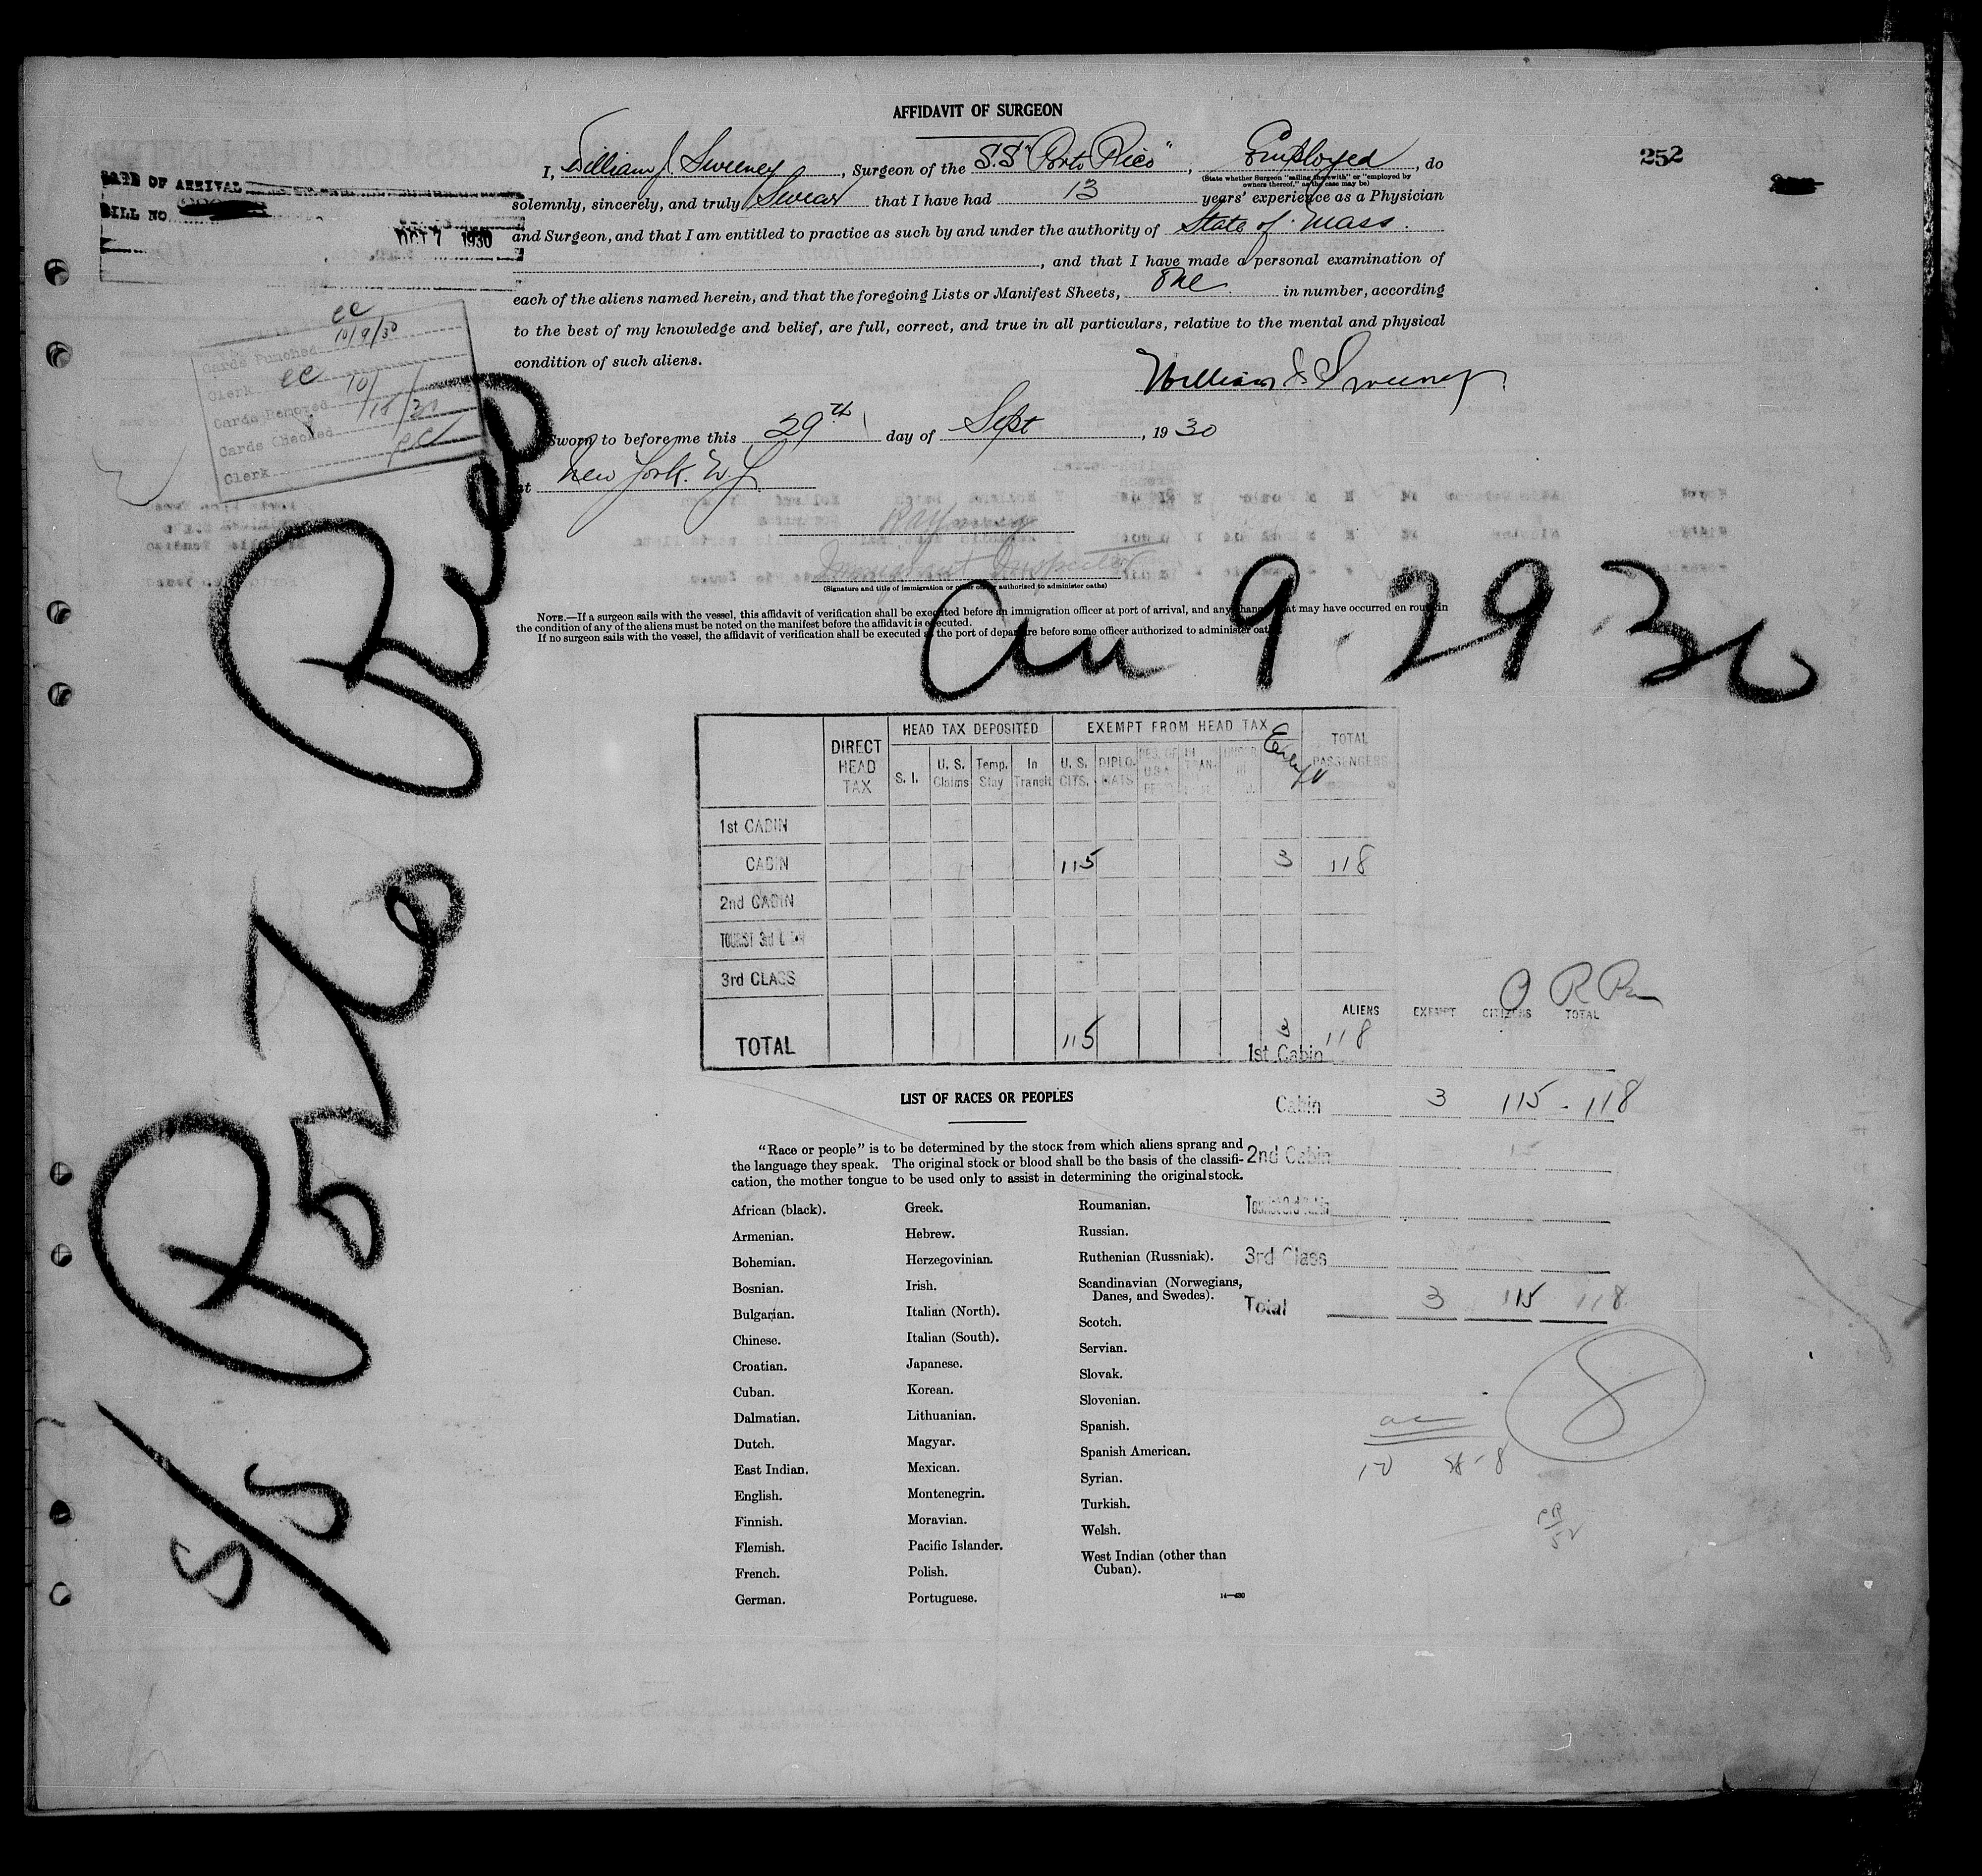 AFFIDAVIT OF SURGEON
I, William J. Sweeney, Surgeon of the S.S "Porto Rico", Employed, do
(State whether Surgeon "sailing therewith" or "employed by
owners thereof," as the case may be)
252
DATE OF ARRIVAL
BILL NO.
OCT 7 1930
solemnly, sincerely, and truly Swear that I have had 13 years' experience as a Physician
and Surgeon, and that I am entitled to practice as such by and under the authority of State of Mass.
, and that I have made a personal examination of
each of the aliens named herein, and that the foregoing Lists or Manifest Sheets, One in number, according
to the best of my knowledge and belief, are full, correct, and true in all particulars, relative to the mental and physical
condition of such aliens.
William J Sweeney
ec
Cards Punched 10/9/30
Clerk ec
Cards Removed 10/
Cards Checked
Clerk
Sworn to before me this 29th day of Sept, 1930
at New York. N.Y.
Immigrant Inspector
(Signature and title of immigration or other officer authorized to administer oaths)
NOTE.—If a surgeon sails with the vessel, this affidavit of verification shall be executed before an immigration officer at port of arrival, and any change that may have occurred en route in
the condition of any of the aliens must be noted on the manifest before the affidavit is executed.
If no surgeon sails with the vessel, the affidavit of verification shall be executed at the port of departure before some officer authorized to administer oaths.
S/S Porto Rico
Arr 9.29.30
DIRECT HEAD TAX
HEAD TAX DEPOSITED
EXEMPT FROM HEAD TAX
TOTAL PASSENGERS
S. I.
U. S. Claims
Temp. Stay
In Transit
U. S. CITS.
DIPLO-MATS
1st CABIN
CABIN 115 3 118
2nd CABIN
TOURIST 3rd
3rd CLASS
TOTAL 115 3 118
ALIENS EXEMPT CITIZENS TOTAL
1st Cabin
Cabin 3 115 - 118
2nd Cabin
3rd Class
Total 3 115 118
8
LIST OF RACES OR PEOPLES
"Race or people" is to be determined by the stock from which aliens sprang and
the language they speak. The original stock or blood shall be the basis of the classifi-
cation, the mother tongue to be used only to assist in determining the original stock.
African (black).
Armenian.
Bohemian.
Bosnian.
Bulgarian.
Chinese.
Croatian.
Cuban.
Dalmatian.
Dutch.
East Indian.
English.
Finnish.
Flemish.
French.
German.
Greek.
Hebrew.
Herzegovinian.
Irish.
Italian (North).
Italian (South).
Japanese.
Korean.
Lithuanian.
Magyar.
Mexican.
Montenegrin.
Moravian.
Pacific Islander.
Polish.
Portuguese.
Roumanian.
Russian.
Ruthenian (Russniak).
Scandinavian (Norwegians,
Danes, and Swedes).
Scotch.
Servian.
Slovak.
Slovenian.
Spanish.
Spanish American.
Syrian.
Turkish.
Welsh.
West Indian (other than
Cuban).